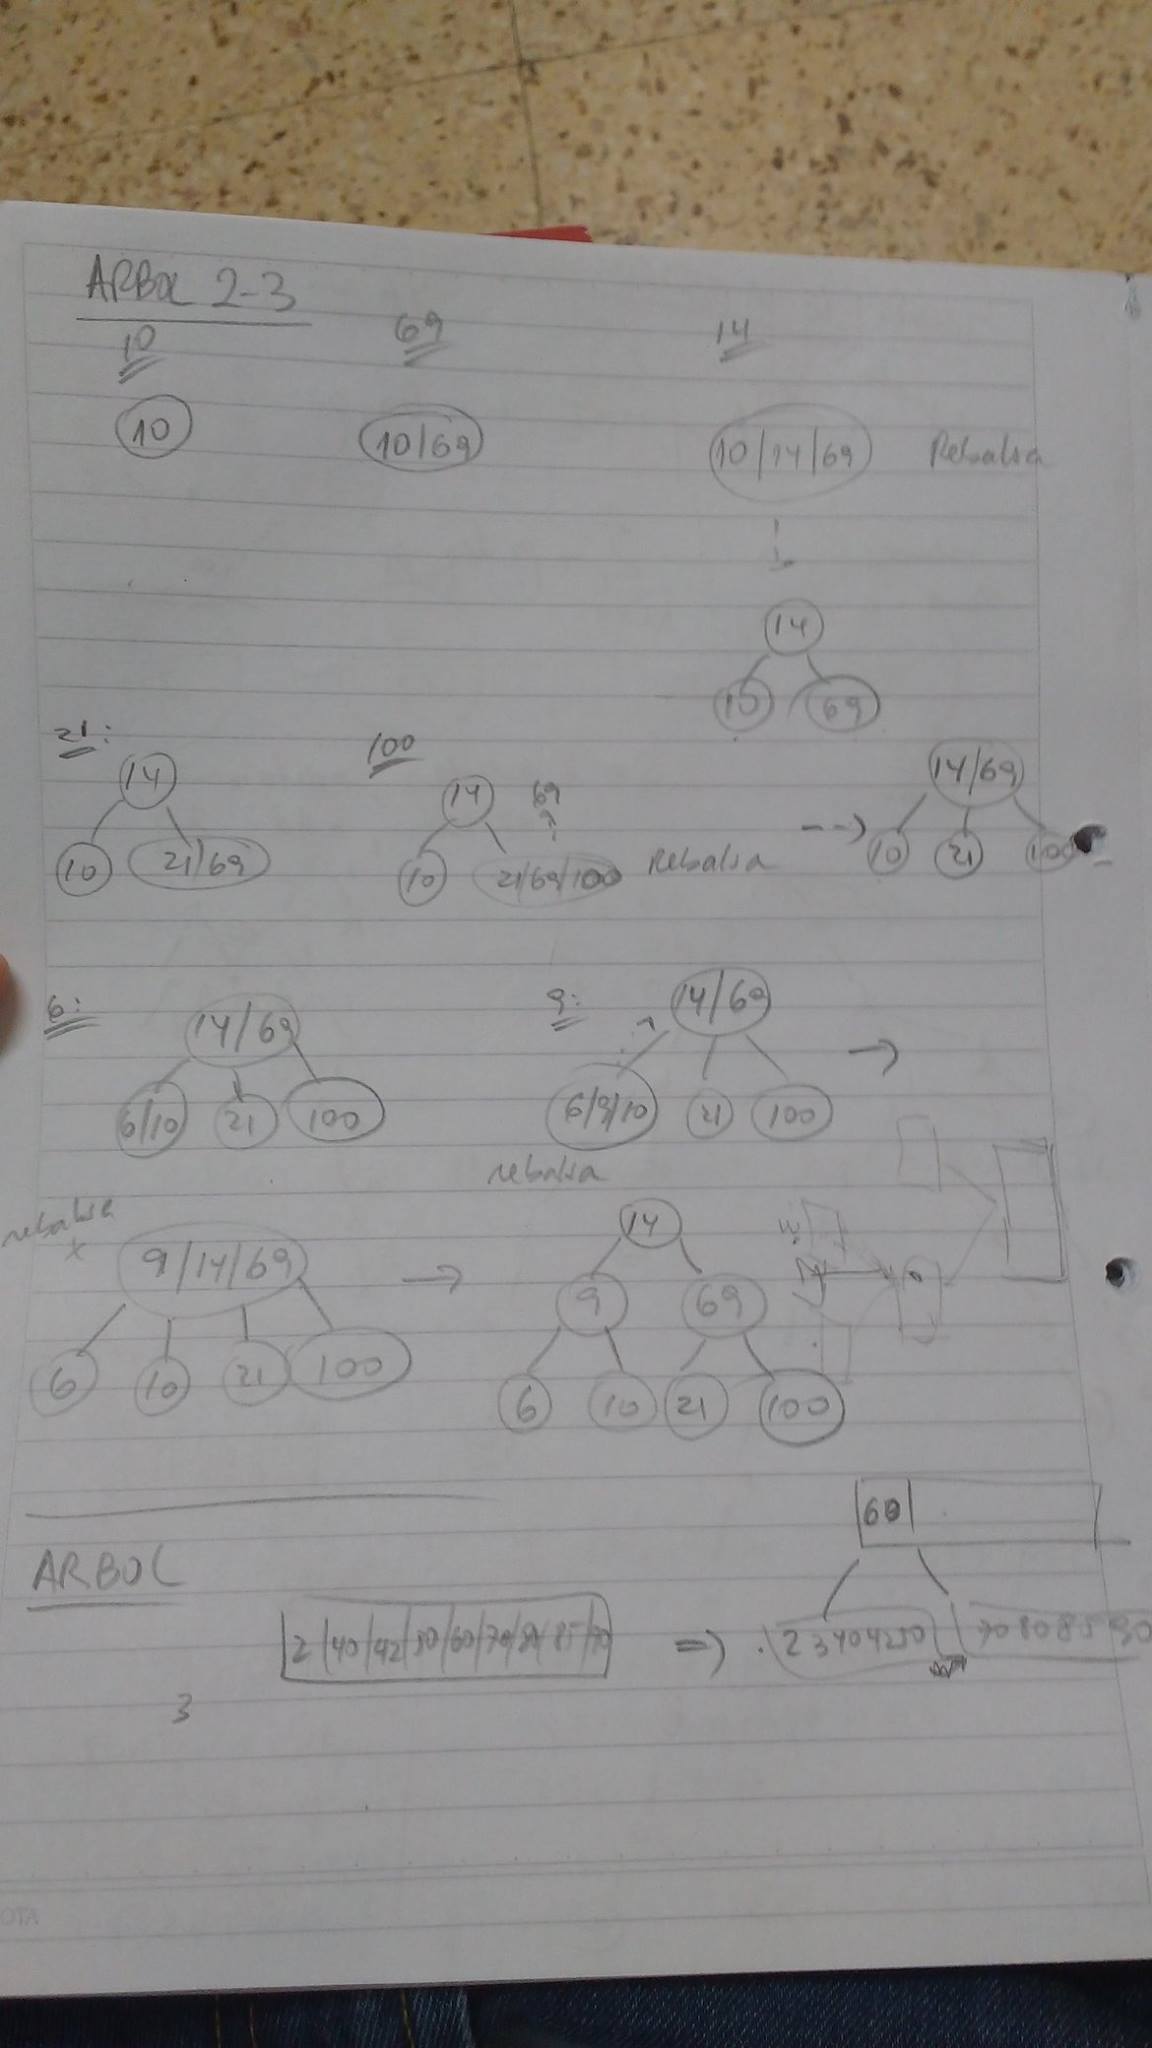 ARBOL 2-3
10 69 14
10 10/69 10/14/69 Rebalsa
14
10 69
21: 100
14 14 69 14/69
10 21/69 10 21/69/100 Rebalsa 10 21 100
6: 9:
14/69 14/69
6/10 21 100 6/9/10 21 100
rebalsa
rebalsa
9/14/69 14
9 69
6 10 21 100 6 10 21 100
60
ARBOL
2/40/42/50/60/70/80/85/90 2 3 40 42 50 70 80 85 90
3
OTA